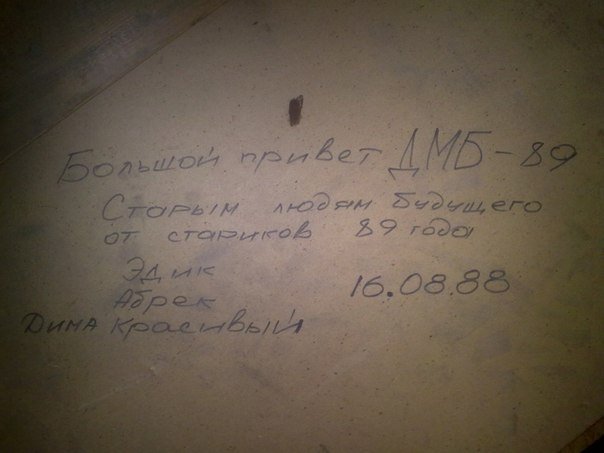 Большой привет ДМБ-89
Старым людям будущего
от стариков 89 года
Эдик
Абрек 16.08.88
Дима красивый